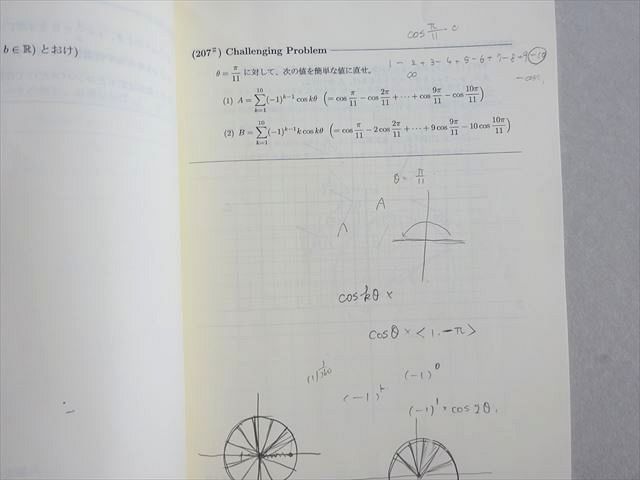 b ∈ ℝ) とおけ)
cos π/11
(207ᴱ) Challenging Problem
1 - 2 + 3 - 4 + 5 - 6 + 7 - 8 + 9 - 10
θ = π/11 に対して，次の値を簡単な値に直せ。
(1) A = ∑_{k=1}^{10} (-1)^{k-1} cos kθ (= cos π/11 - cos 2π/11 + ⋯ + cos 9π/11 - cos 10π/11)
(2) B = ∑_{k=1}^{10} (-1)^{k-1} k cos kθ (= cos π/11 - 2 cos 2π/11 + ⋯ + 9 cos 9π/11 - 10 cos 10π/11)
θ = π/11
A
cos kθ ×
cosθ × < 1, -π >
(-1)^0
(-1)^k
(-1)^1 × cos 2θ.